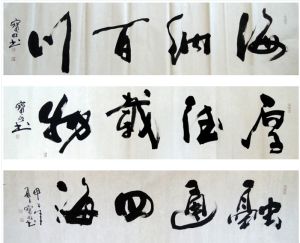 海納百川
厚德載物
融通四海